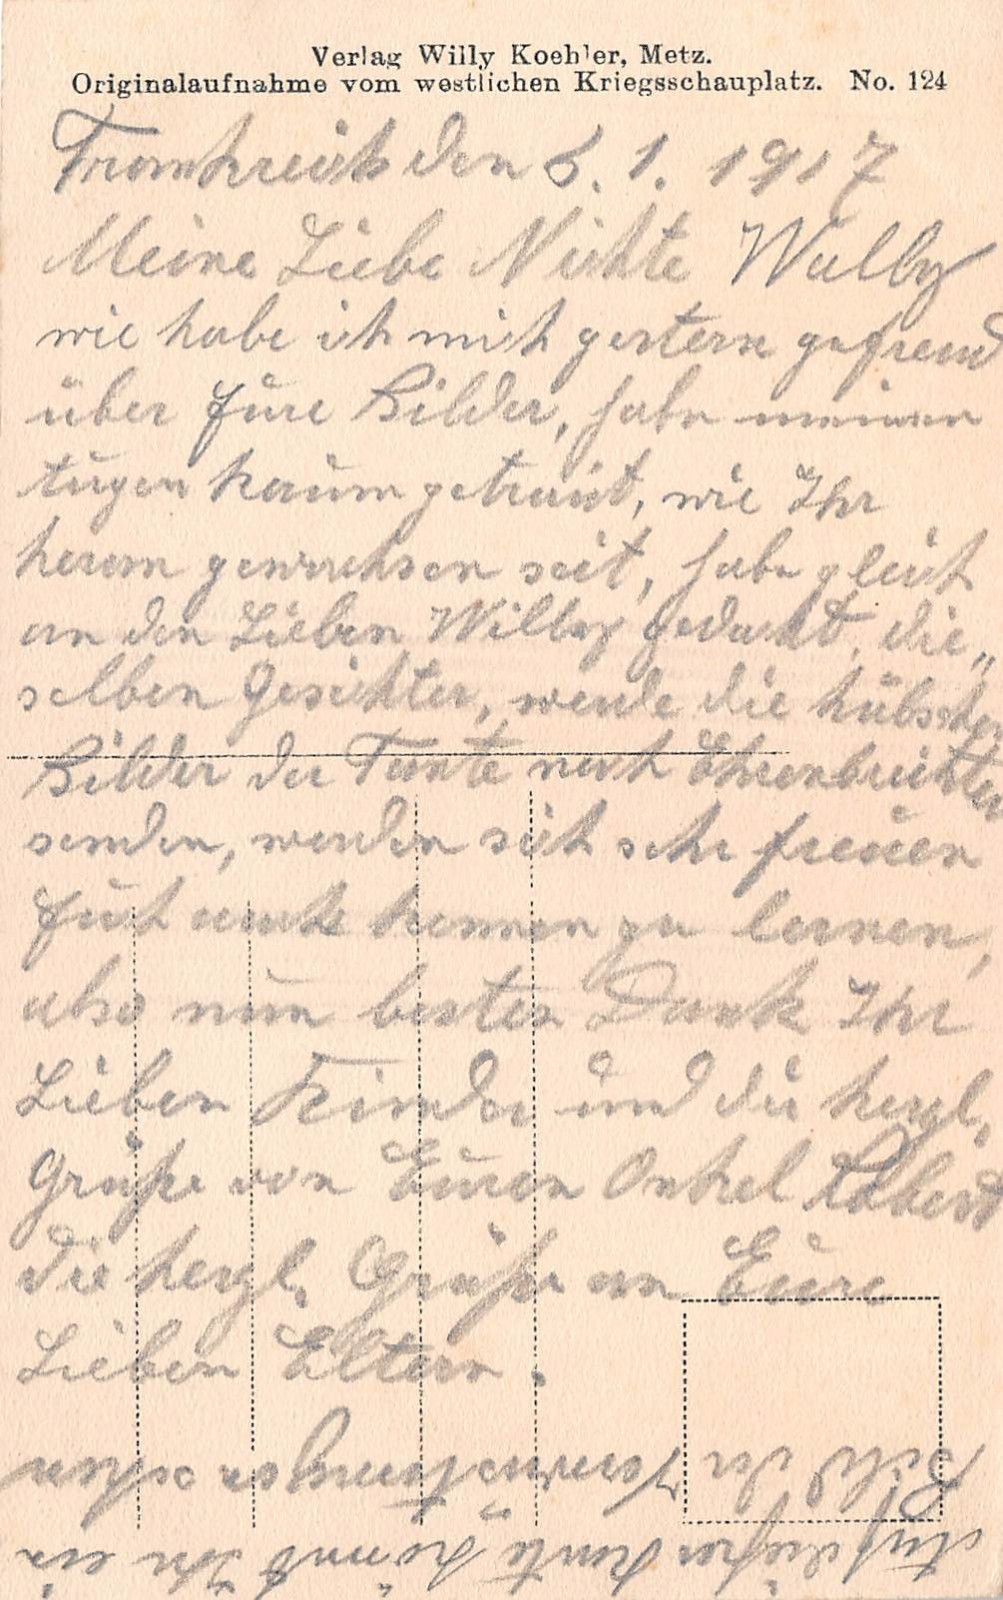 Verlag Willy Koehler, Metz.
Originalaufnahme vom westlichen Kriegsschauplatz. No. 124
Frankreich den 5. 1. 1917
Meine Liebe Nichte Wally
wie habe ich mich gestern gefreud
über Eure Bilder, habe meinen
Augen kaum getraut, wie Ihr
heran gewachsen seit, habe gleich
an den Lieben Willy gedacht, die„
selben Gesichter, werde die hübschen
Bilder der Tante nach Ehrenbreitstein
senden, werden sich sehr freuen
Euch auch kennen zu lernen,
also nun besten Dank Ihr
Lieben Kinder und die herzl,
Grüße von Euren Onkel Robert
die herzl. Grüße an Eure
Lieben Eltern.
Auf dieser Karte könnt Ihr ein
Bild der Verwüstungen sehen